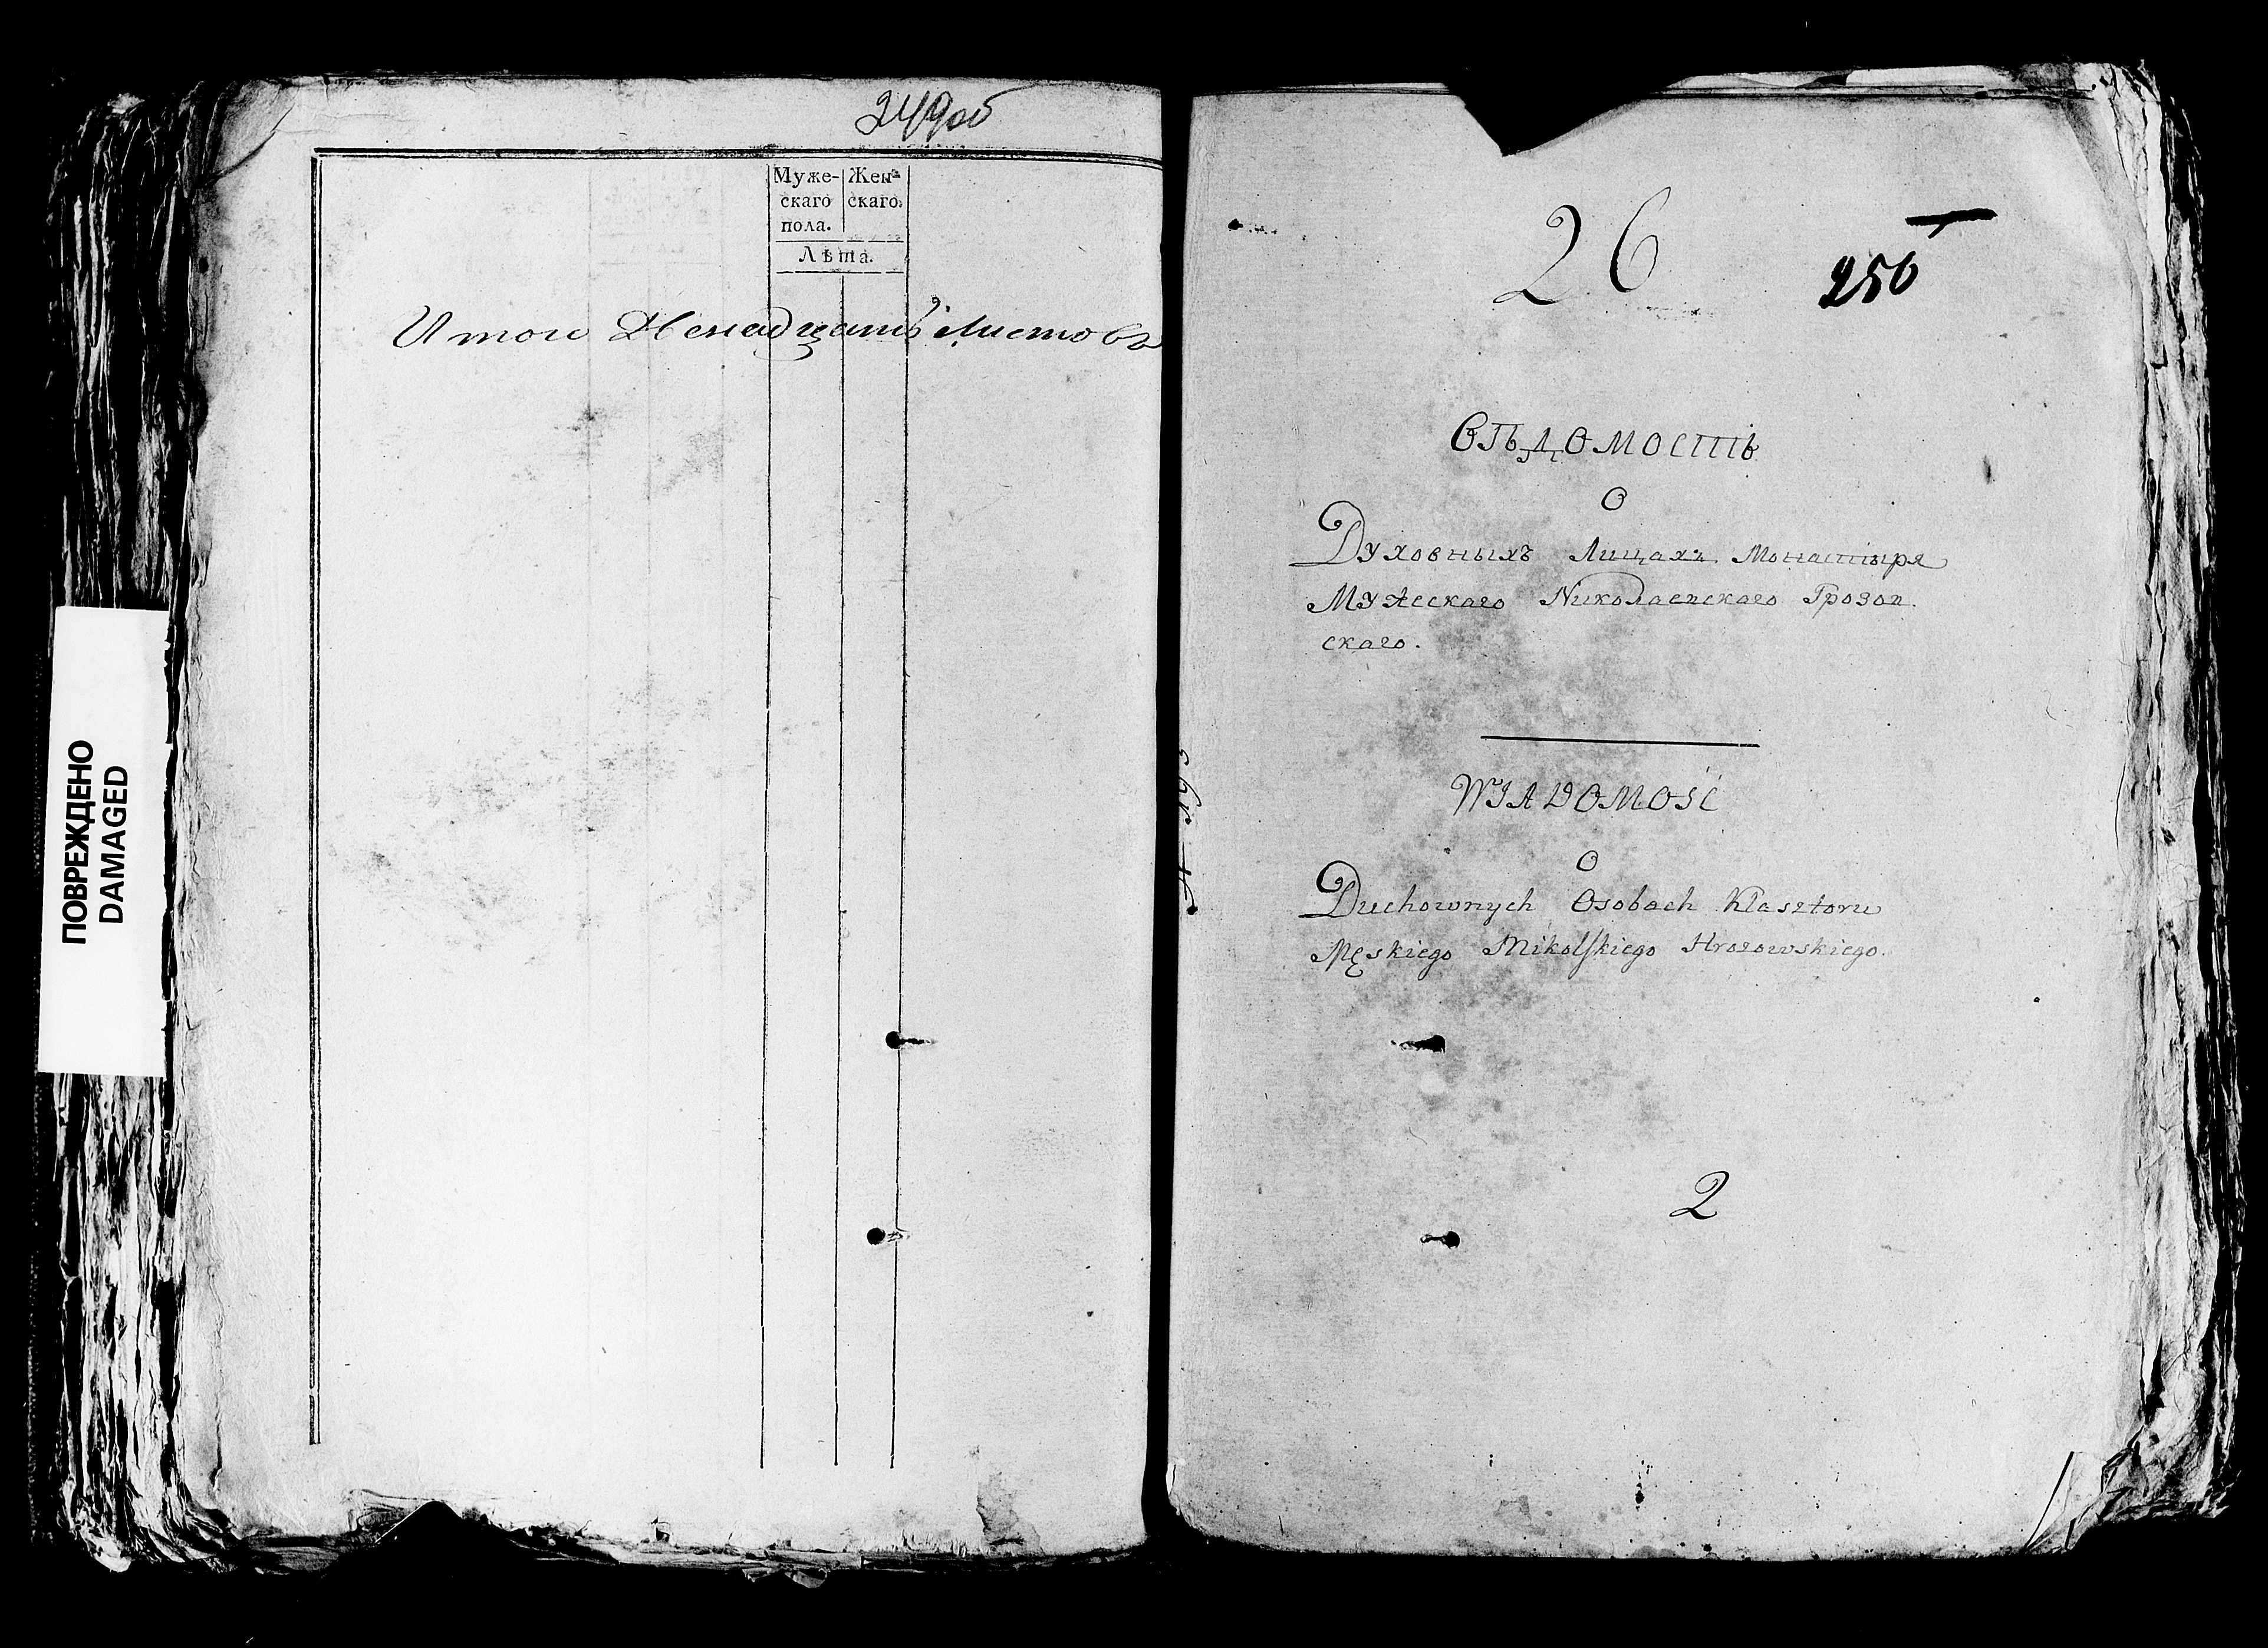 ПОВРЕЖДЕНО
DAMAGED
249об
Муже-
скаго
пола.
Жен-
скаго.
Лѣта.
Итого листовъ
26
250
Вѣдомость
О
Духовныхъ Лицахъ Монастыря
Мужескаго Николаевскаго Грозов
скаго.
WIADOMOŚĆ
O
Duchownych Osobach Klasztoru
Męskiego Mikolskiego Hrozowskiego.
2